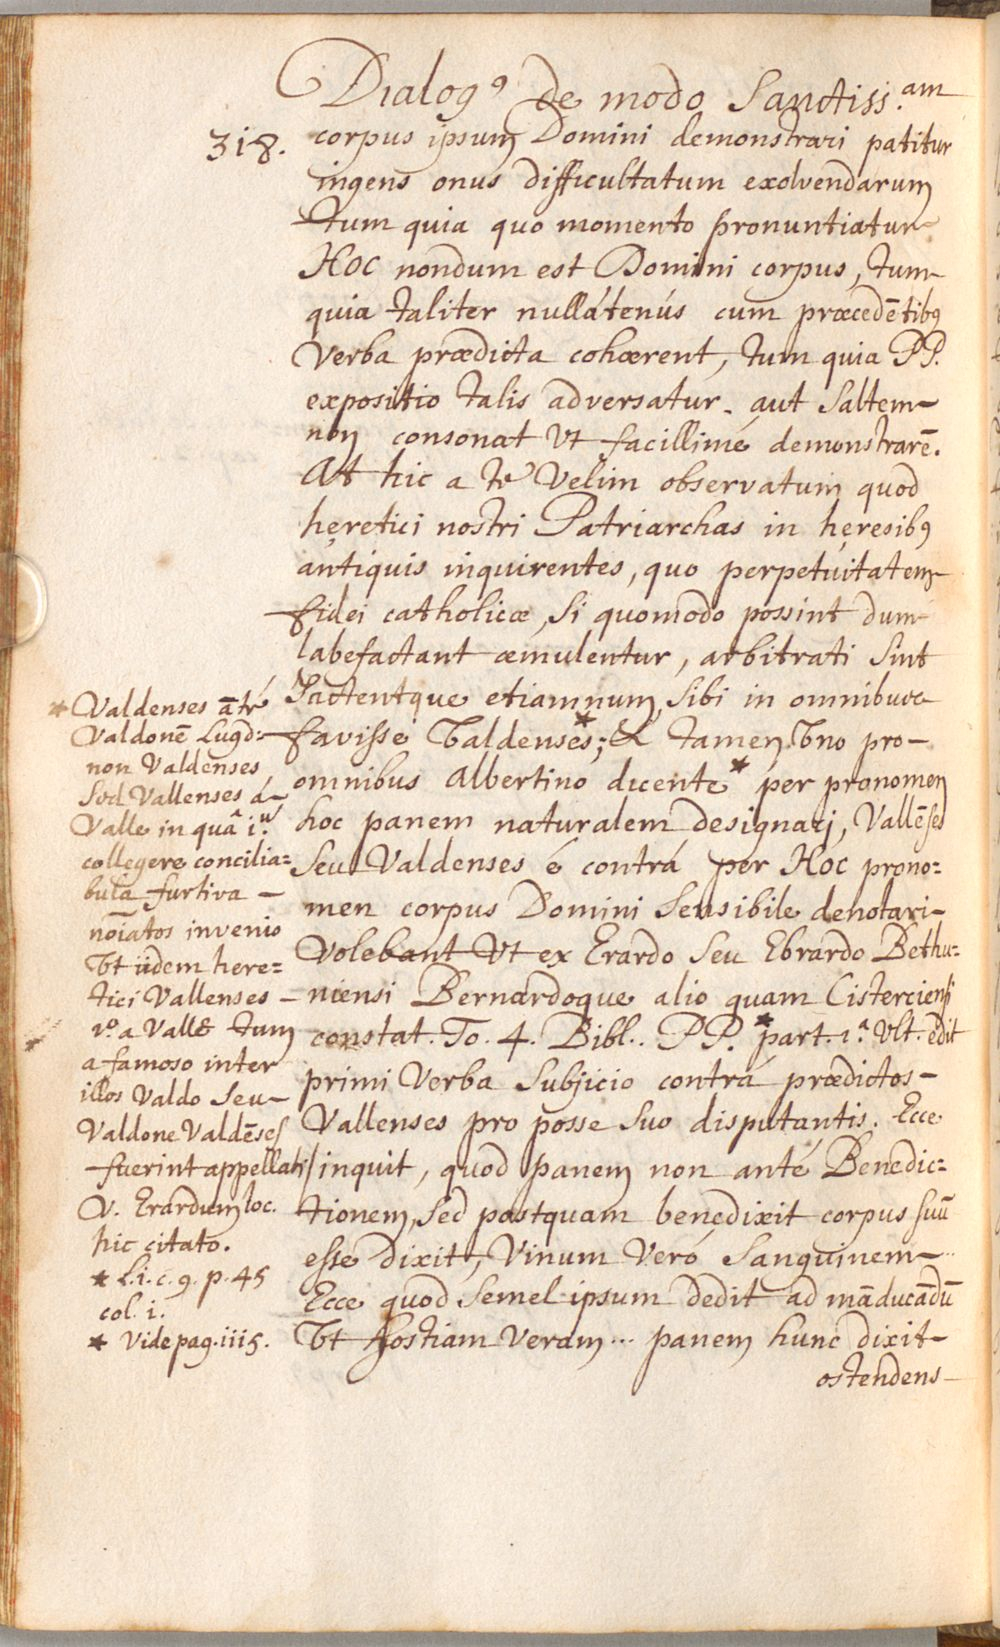 Dialog9 de modo Sanctiss.am
318.
corpus ipsum Domini demonstrari patitur
ingens onus difficultatum exolvendarum
tum quia quo momento pronuntiatur
HOC nondum est Domini corpus, tum
quia taliter nullátenús cum præcedētib9
Verba prædicta cohærent, tum quia PP.
expositio talis adversatur. aut saltem
non consonat Vt facillimé demonstrarē.
At hic a te Velim observatum quod
hęretici nostri Patriarchas in hęresib9
antiquis inquirentes, quo perpetuitatem
fidei catholicæ, si quomodo possint dum
labefactant æmulentur, arbitrati sint
Jactentque etiamnum sibi in omnibus
favisse Valdenses*; & tamen Vno pro
omnibus Albertino dicente* per pronomen
hoc panem naturalem designari, Vallēses
seu Valdenses é contrá per HOC prono=
men corpus Domini Sensibile denotari
Volebant Vt ex Erardo seu Ebrardo Bethu=
niensi Bernardoque alio quam Cisterciensi
constat. To. 4. Bibl. PP.* part. 1.ª Vlt. edit
primi Verba subjicio contrá prædictos
Vallenses pro posse suo disputantis. Ecce
inquit, quod panem non anté Benedic=
tionem, sed postquam benedixit corpus suū
esse dixit, Vinum Veró Sanguinem
Ecce quod semel ipsum dedit ad māducādū
Vt hostiam Veram... panem hunc dixit
ostendens
* Valdenses
Valdonē Lugd=
non Valdenses
sed Vallenses á
Valle in quâ
collegere concilia=
bula furtiva
nōiatos invenio
Vt iidem here=
tici Vallenses
1º a Valle tum
a famoso inter
illos Valdo seu
Valdone Valdēses
fuerint appellati
V. Erardum loc.
hic citato.
* L.i. c. 9. p. 45
col. i.
* Vide pag. iii5.